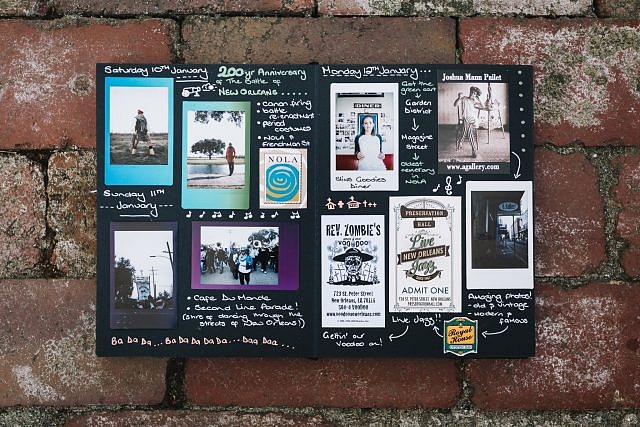 Saturday 10TH January
200 yr Anniversary
of The Battle of
NEW ORLEANS...
• canon firing
• battle
re-enactment
• period
costumes
• NOLA
Frenchman St
NOLA
Sunday 11TH
January
• Cafe Du Monde
• Second Line Parade!
(3hrs of dancing through the
streets of New Orleans!)
Ba Da Da... Ba Da Da Da Da... Daa Daa...
Monday 12TH January...
DINER
Slims Goodies
Diner
Got the
green cart
Garden
District
Magazine
Street
oldest
cemetery
in
NOLA
Joshua Mann Pailet
www.agallery.com
REV. ZOMBIE'S
VOODOO
723 St. Peter Street
New Orleans, LA 70116
504-4 VOODOO
www.voodooneworleans.com
Gettin' our
Voodoo on!
PRESERVATION
HALL
Live
NEW ORLEANS
Jazz
ADMIT ONE
726 ST. PETER STREET NEW ORLEANS
PRESERVATIONHALL.COM
Live Jazz!!
Amazing photos!
- old & vintage
- modern &
famous
Royal
House
OYSTER BAR